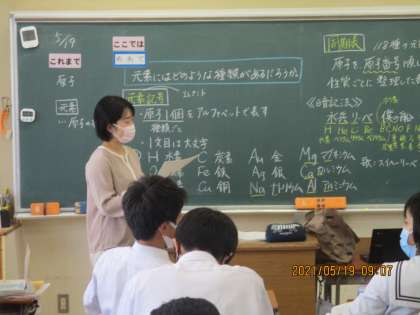 5/19
これまで
ここでは
原子
元素
…原子の
元素にはどのような種類があるだろうか。
元素記号
エレメント
・原子1個をアルファベットで表す
種類ごと
・1文字目は大文字
H 水素 C 炭素 Au 金 Mg マグネシウム
O 酸素 Fe 鉄 Ag 銀 Ca カルシウム
Cu 銅 Na ナトリウム Al アルミニウム
周期表
118種の元
原子を原子番号順
性質ごとに整理した
《暗記法》
水兵リーベ
H He Li Be B C N O F N
2021/05/19 09:07